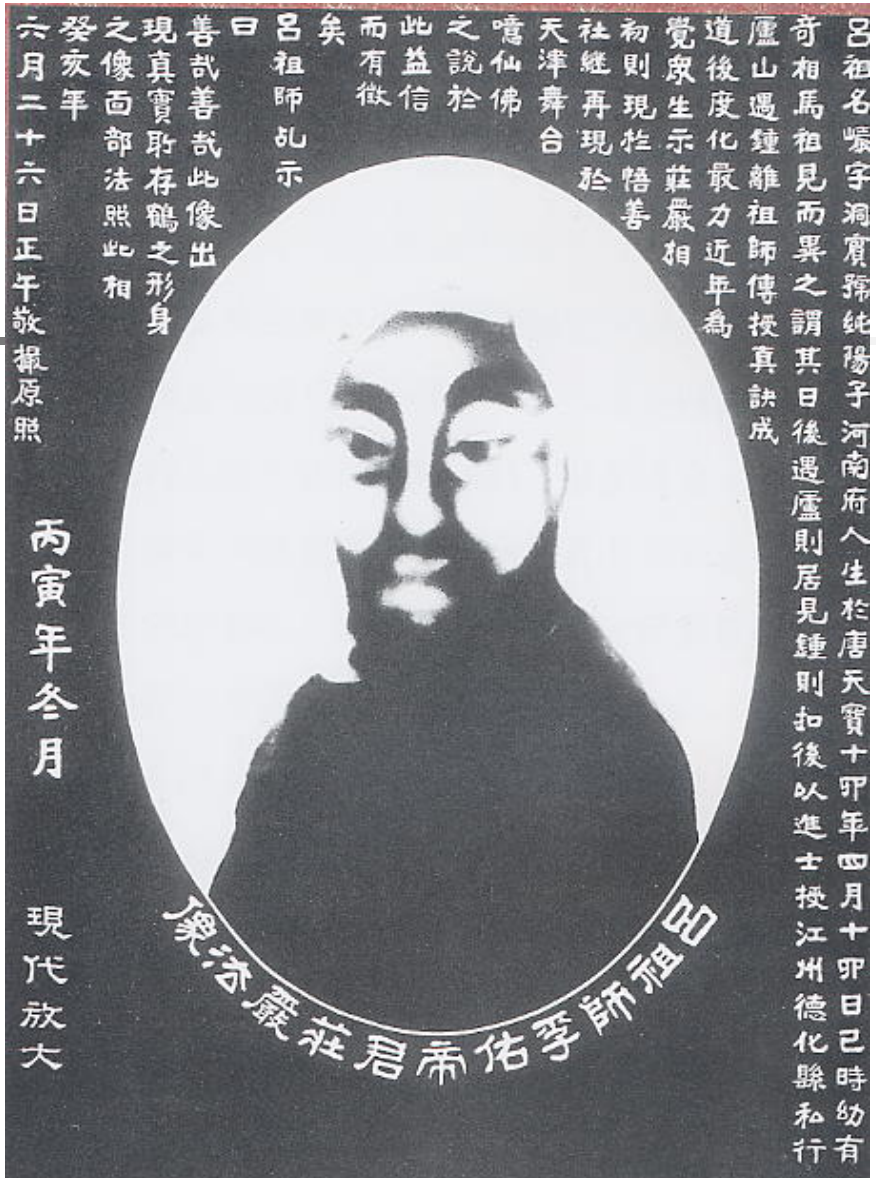 呂祖名字洞賓號純陽子河南府人生於唐天寶十卯年四月十卯日巳時幼有
奇相馬祖見而異之謂其日後遇廬則居見鍾則扣後以進士授江州德化縣私行
廬山遇鍾離祖師傳授真訣成
道後度化最力近年為
覺眾生示莊嚴相
初則現於悟善
社繼再現於
天津舞台
噫仙佛
之說於
此益信
而有徵
矣
呂祖師乩示
曰
善哉善哉此像出
現真實所存鶴之形身
之像面部法照此相
癸亥年
六月二十六日正午敬攝原照
丙寅年冬月
現代放大
呂祖師孚佑帝君莊嚴法像